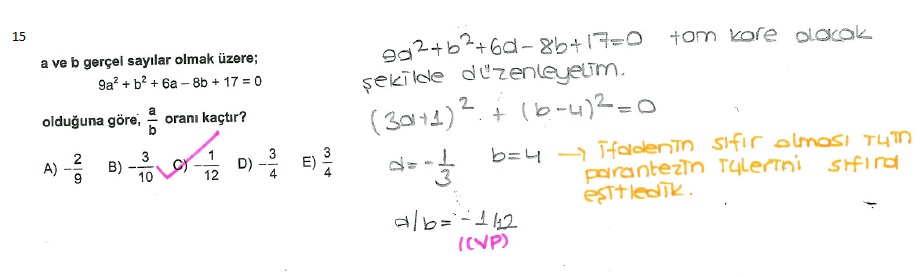 15
a ve b gerçel sayılar olmak üzere;
9a² + b² + 6a – 8b + 17 = 0
olduğuna göre, a/b oranı kaçtır?
A) -2/9 B) -3/10 C) -1/12 D) -3/4 E) 3/4
9a²+b²+6a-8b+17=0 tam kare olacak
şekilde düzenleyelim.
(3a+1)² + (b-4)²=0
a=-1/3 b=4 → ifadenin sıfır olması için
parantezin içlerini sıfıra
eşitledik.
a/b=-1/12
(CVP)